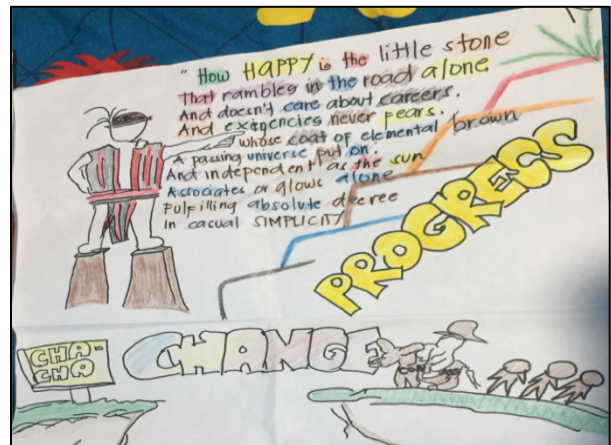 "How HAPPY is the little stone
That rambles in the road alone
And doesn't care about careers.
And exegencies never fears.
whose coat of elemental brown
A passing universe put on:
And independent as the sun
Associates or glows alone
Fulfilling absolute decree
In casual SIMPLICITY
PROGRESS
CHA-
CHA
CHANGE